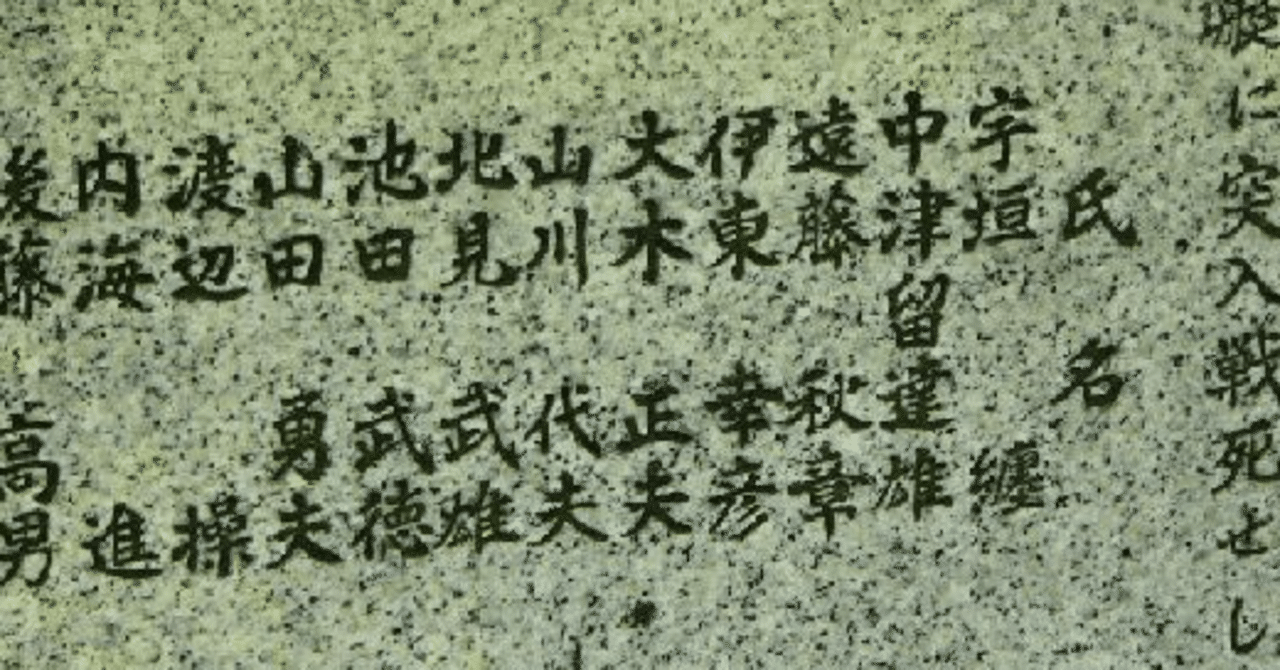 艇に突入戦死せし
氏名
宇垣纏
中津留達雄
遠藤秋章
伊東幸彦
大木正夫
山川代夫
北見武雄
池田武徳
山田勇夫
渡辺操
内海進
後藤高男